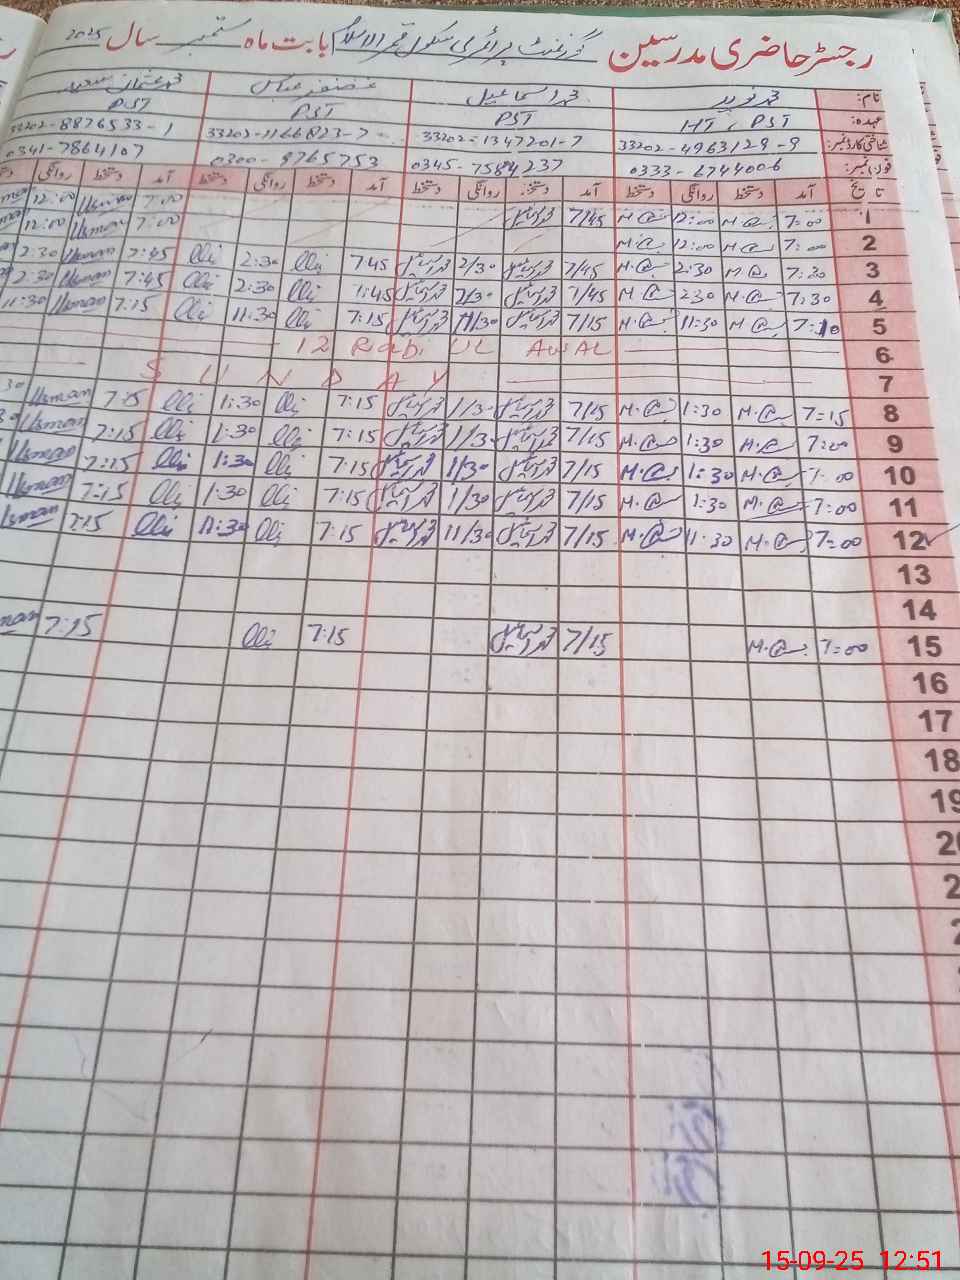 رجسٹر حاضری مدرسین گورنمنٹ پرائمری سکول قمر الاسلام بابت ماہ ستمبر سال 2025
نام: محمد نوید محمد اسماعیل غضنفر عباس محمد عثمان سعید
عہدہ: HT, PST PST PST PST
شناختی کارڈ نمبر: 33202-4963129-9 33202-1347201-7 33202-1166823-7 33202-8876533-1
فون نمبر: 0333-6744006 0345-7584237 0300-8765753 0341-7864107
تاریخ آمد دستخط روانگی دستخط آمد دستخط روانگی دستخط آمد دستخط روانگی دستخط آمد دستخط روانگی
1 7:00 M.@ 12:00 M.@ 7/45 7:00 Usman 12:00
2 7:00 M.@ 12:00 M.@ 7:00 Usman 12:00
3 7:30 M.@ 2:30 M.@ 7/45 2/30 7:45 Ali 2:30 Ali 7:45 Usman 2:30
4 7:30 M.@ 2:30 M.@ 7/45 2/30 7:45 Ali 2:30 Ali 7:45 Usman 2:30
5 7:10 M.@ 11:30 M.@ 7/15 11/30 7:15 Ali 11:30 Ali 7:15 Usman 11:30
6 12 Rabi UL AWAL
7 SUNDAY
8 7:15 M.@ 1:30 M.@ 7/15 1/30 7:15 Ali 1:30 Ali 7:15 Usman 30
9 7:00 M.@ 1:30 M.@ 7/15 1/30 7:15 Ali 1:30 Ali 7:15 Usman
10 7:00 M.@ 1:30 M.@ 7/15 1/30 7:15 Ali 1:30 Ali 7:15 Usman
11 7:00 M.@ 1:30 M.@ 7/15 1/30 7:15 Ali 1:30 Ali 7:15 Usman
12 7:00 M.@ 11:30 M.@ 7/15 11/30 7:15 Ali 11:30 Ali 7:15 Usman
13
14
15 7:00 M.@ 7/15 7:15 Ali 7:15
16
17
18
19
15-09-25 12:51